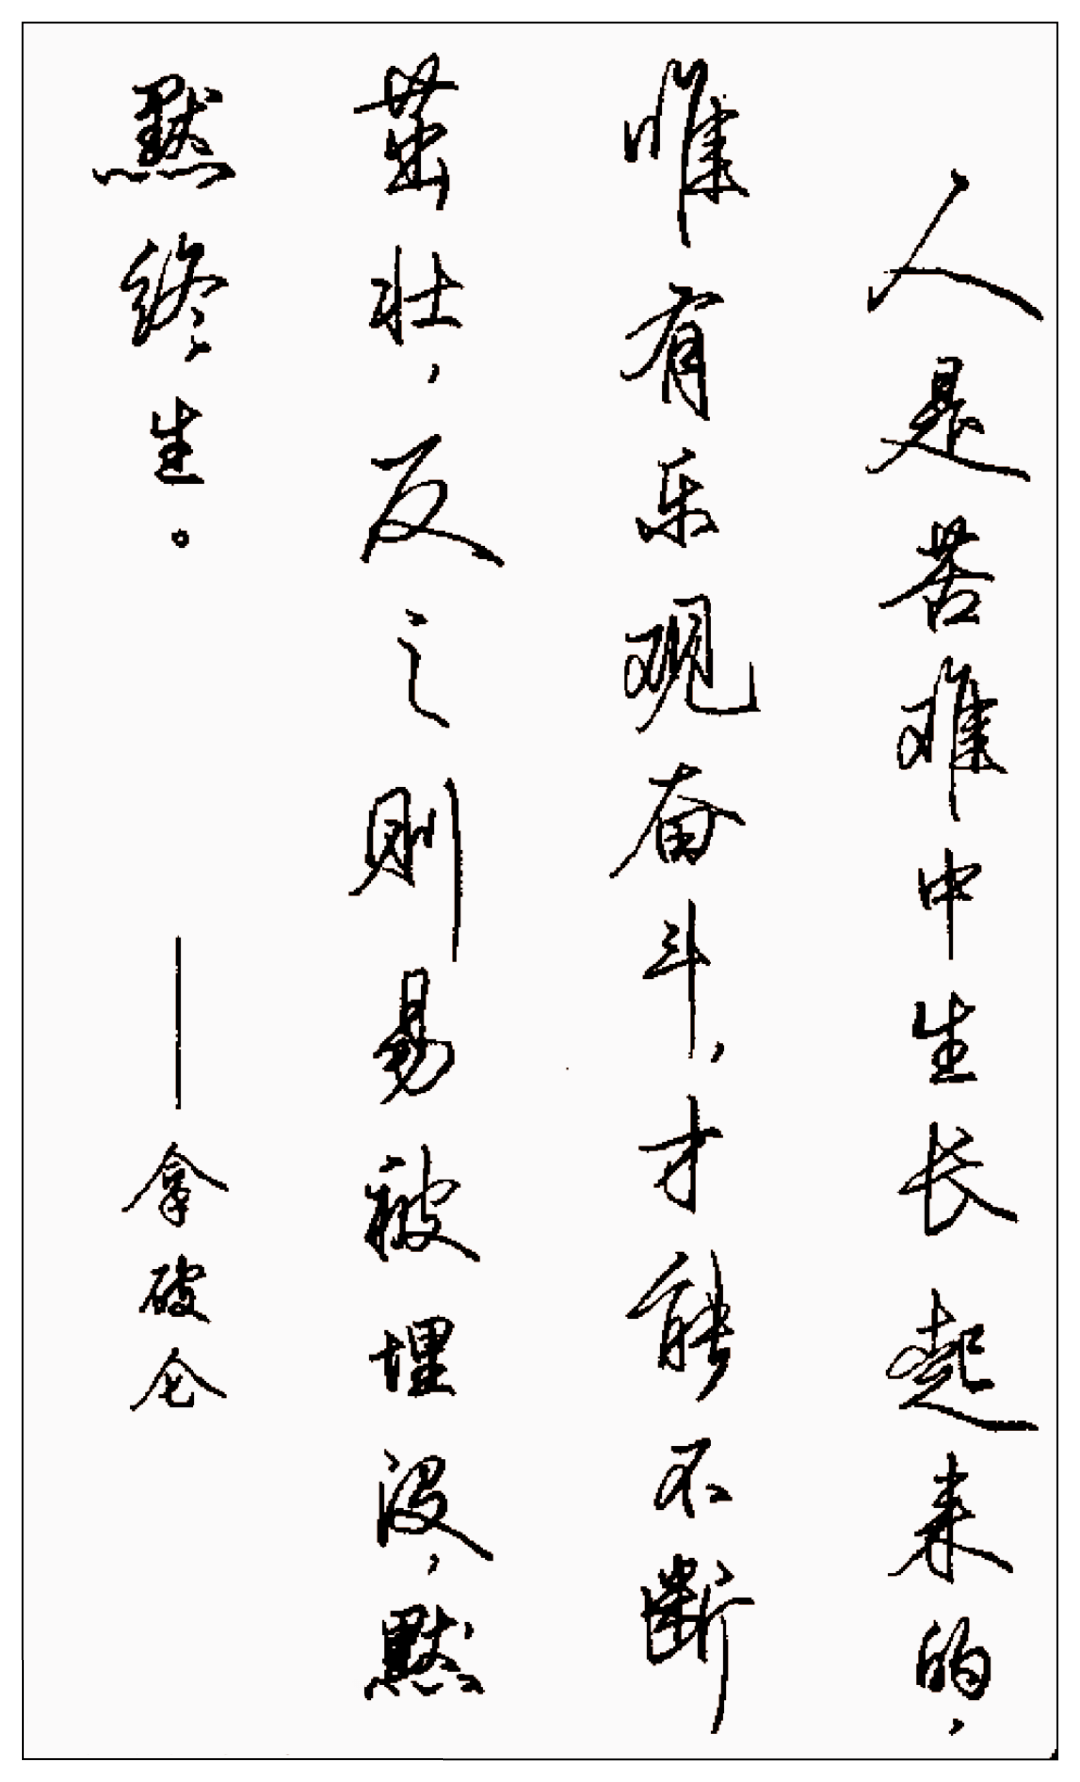 人是苦难中生长起来的，
唯有乐观奋斗，才能不断
茁壮，反之则易被埋没，默
默终生。
——拿破仑